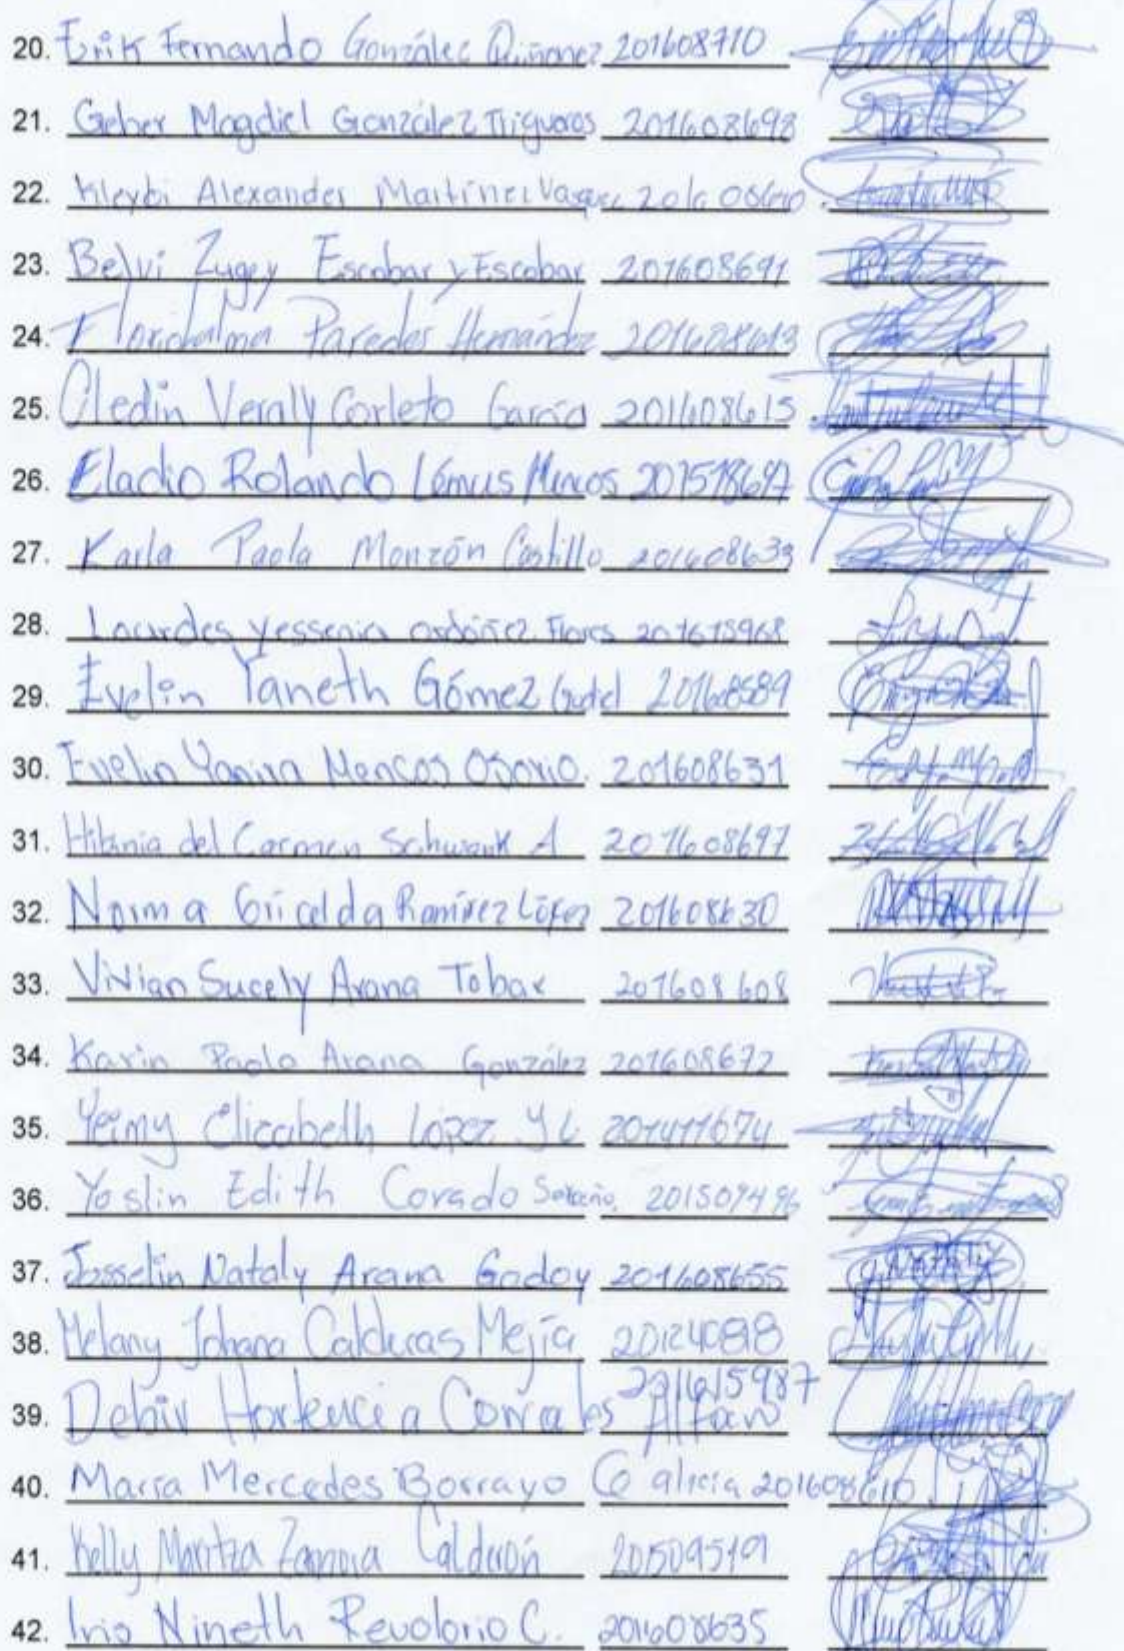 20. Erik Fernando González Quiñonez 201608710
21. Geber Magdiel González Trigueros 201608698
22. Kleybi Alexander Martínez Vasquez
23. Belvi Zugey Escobar y Escobar 201608691
24. Floridalma Paredes Hernández 201608613
25. Cledin Veraly Corleto García 201608615
26. Eladio Rolando Lémus Mencos
27. Karla Paola Monzón Castillo 201608633
28. Lourdes Yessenia Ordóñez Flores 201615968
29. Evelin Yaneth Gómez
30. Evelin Yanira Mencos Osorio. 201608631
31. Hilania del Carmen Schwank A 201608697
32. Norma Gricelda Ramírez López 201608630
33. Vivian Sucely Arana Tobar 201608608
34. Karin Paola Arana González 201608672
35. Yeimy Elizabeth López y L
36. Yoslin Edith Corado 201507496
37. Josselin Nataly Arana Godoy 201608655
38. Melany Johana Calderas Mejía
39. Debir Hortencia Corrales Alfaro 201615987
40. María Mercedes Borrayo Galicia 201608610
41. Kelly Maritza Zamora Calderón 201509519
42. Iris Nineth Revolorio C. 201608635